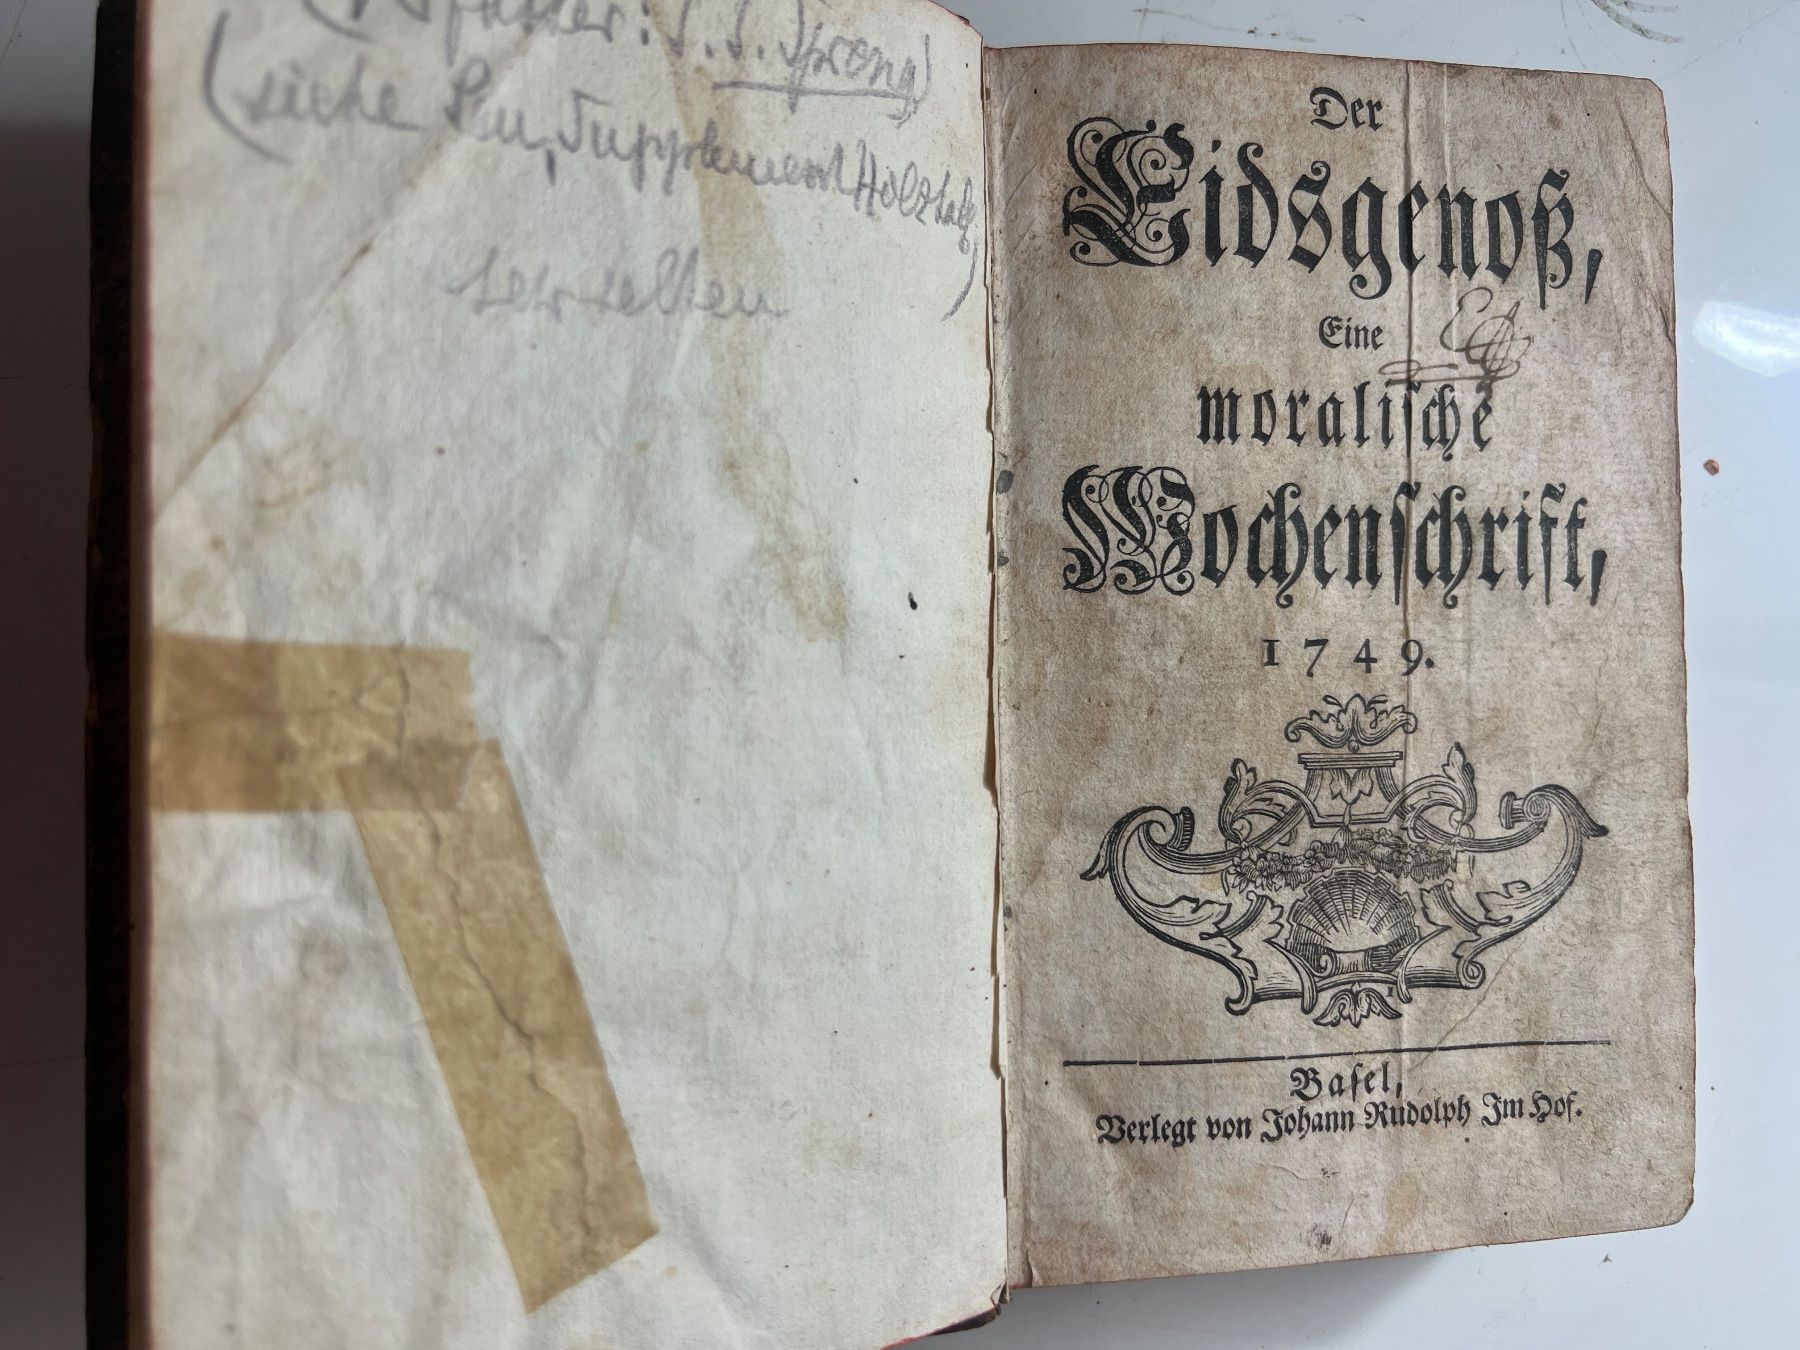 (Verfasser: J. J. Spreng)
(siehe Leu, Supplement Holzhalb)
sehr selten
Der
Eidsgenoß,
Eine
moralische
Wochenschrift,
1749.
Basel,
Verlegt von Johann Rudolph Im Hof.